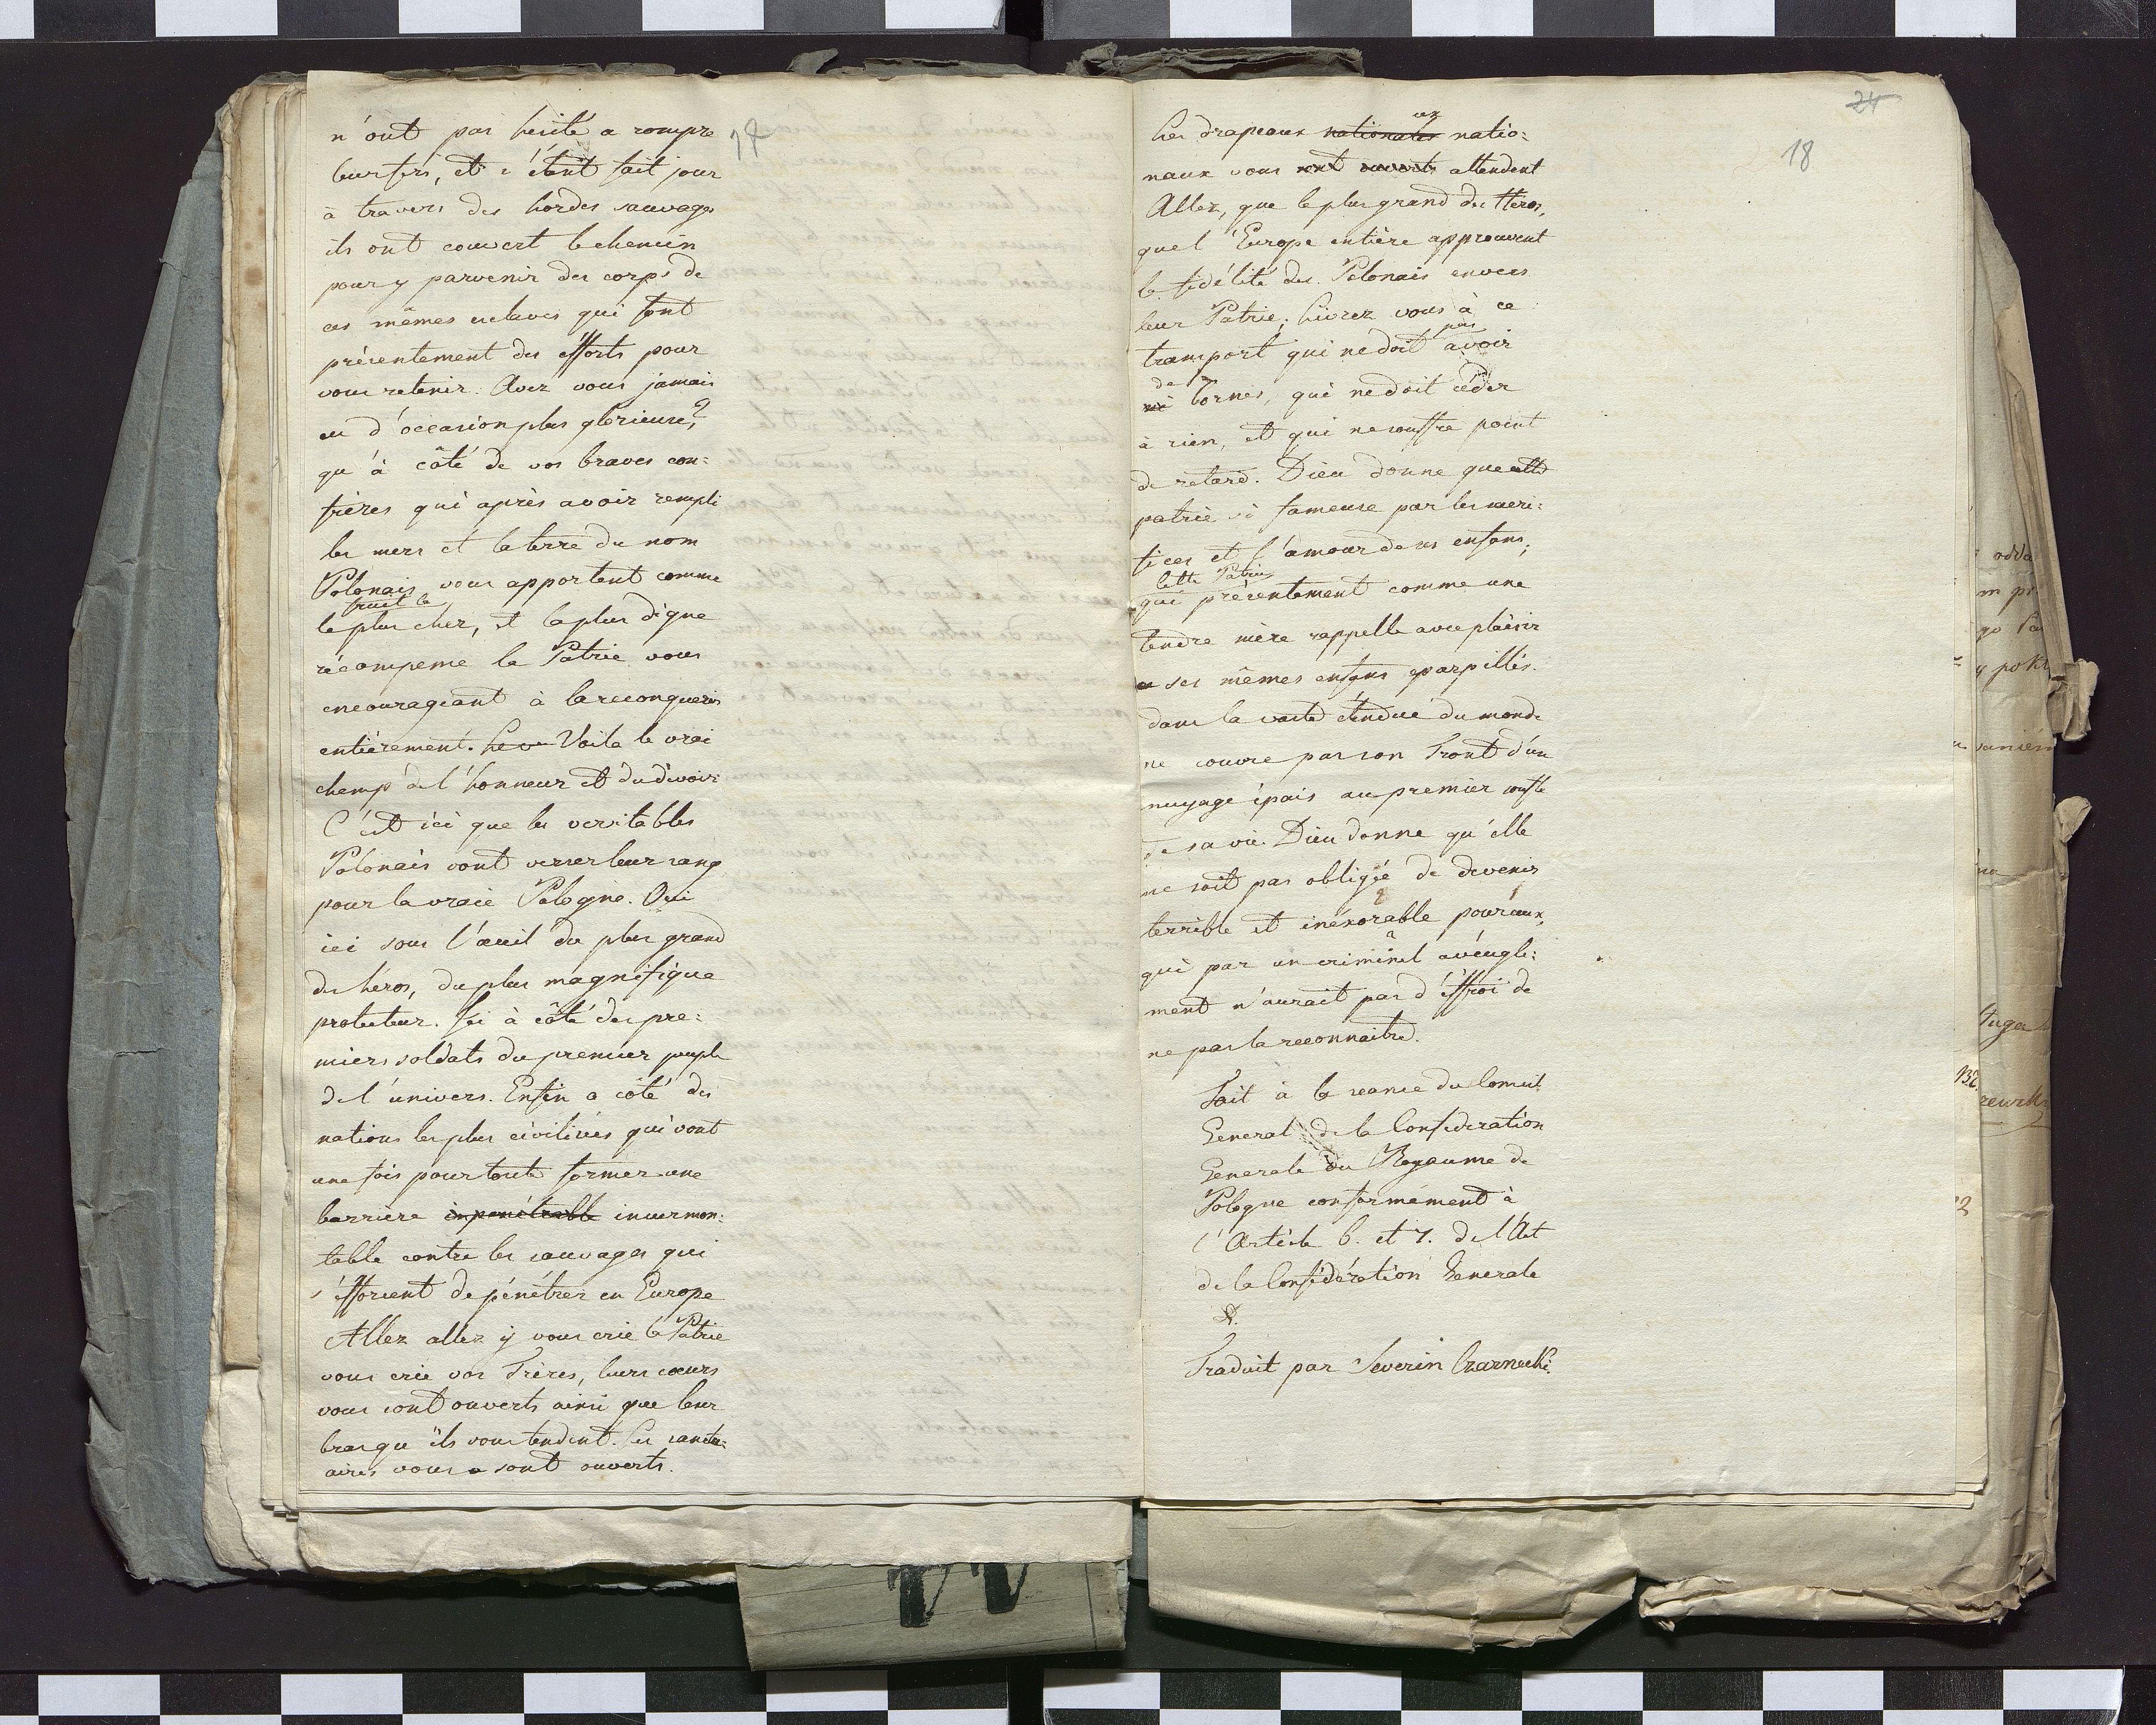 n'ont pas hesité a rompre
leurs fers, et s'étant fait jour
à travers des hordes sauvages
ils ont couvert le chemin
pour y parvenir des corps de
ces mêmes esclaves qui font
présentement des éfforts pour
vous retenir. Avez vous jamais
eu d'occasion plus glorieuse?
qu'à côté de vos braves con=
frères qui après avoir rempli
les mers et la terre du nom
Polonais vous apportent comme
fruit le
le plus cher, et la plus digne
récompense la Patrie vous
encourageant à la reconquerir
entiérement. Voila le vrai
champ de l'honneur et du devoir
C'est ici que les veritables
Polonais vont verser leur sang
pour la vraie Pologne. Oui
ici sous l'œuil du plus grand
des héros, du plus magnifique
protecteur. Ici à côté des pre=
miers soldats du premier peuple
de l'univers. Enfin a côté des
nations les plus civilisées qui vont
une fois pour toute former une
barrière inpenétrable insurmon=
table contre les sauvages qui
s'éfforcent de pénétrer en Europe
Allez allez y vous crie la Patrie
vous crie vos Frères, leurs cœurs
vous sont ouverts ainsi que leur
bras qu'ils vous tendent. Les sanctu=
aires vous sont ouverts.
17
24
18
ux
Les drapeaux nationales natio=
naux vous sont ouverts attendent
Allez, que le plus grand des Heros,
que l'Europe entière approuvent
la fidélité des Polonais envers
leur Patrie; Livrez vous à ce
pas
transport qui ne doit avoir
de
ni bornes, qui ne doit céder
à rien, et qui ne souffre point
de retard. Dieu donne que cette
patrie si fameuse par les sacri=
fices et l'amour de ses enfans;
Cette Patrie
qui présentement comme une
tendre mère rappelle avec plaisir
ses mêmes enfans eparpillés
dans la vaste étendue du monde
ne couvre pas son Front d'un
nuyage épais au premier soufle
de sa vie. Dieu donne qu'elle
ne soit pas obligée de devenir
terrible et inéxorable pour ceux,
qui par un criminel avéugle=
ment n'aurait pas d'éffroi de
ne pas la reconnaitre.
Fait à la seance du Conseil
General de la Confederation
Generale du Royaume de
Pologne conformément à
l'Article 6. et 7. de l'Act
de la Conféderation Generale
Traduit par Severin Czarnecki.